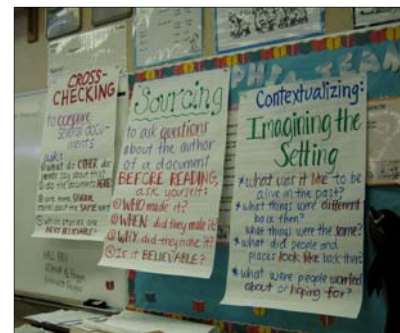 CROSS-
CHECKING
to compare
several docu-
ments
what do OTHER docu-
ments say about this?
do the documents
are more
stories about the SAME
MOST BELIEVABLE?
Sourcing
to ask questions
about the author
of a document
BEFORE READING,
ask yourself:
WHO made it?
WHEN did they make it?
WHY did they make it?
Is it BELIEVABLE?
Contextualizing:
Imagining the
Setting
*what was it like to be
alive in the past?
*what things were different
back then?
what things were the same?
*what did people and
places look like back then?
*what were people worried
about or hoping for?
TEAM
HALL PASS